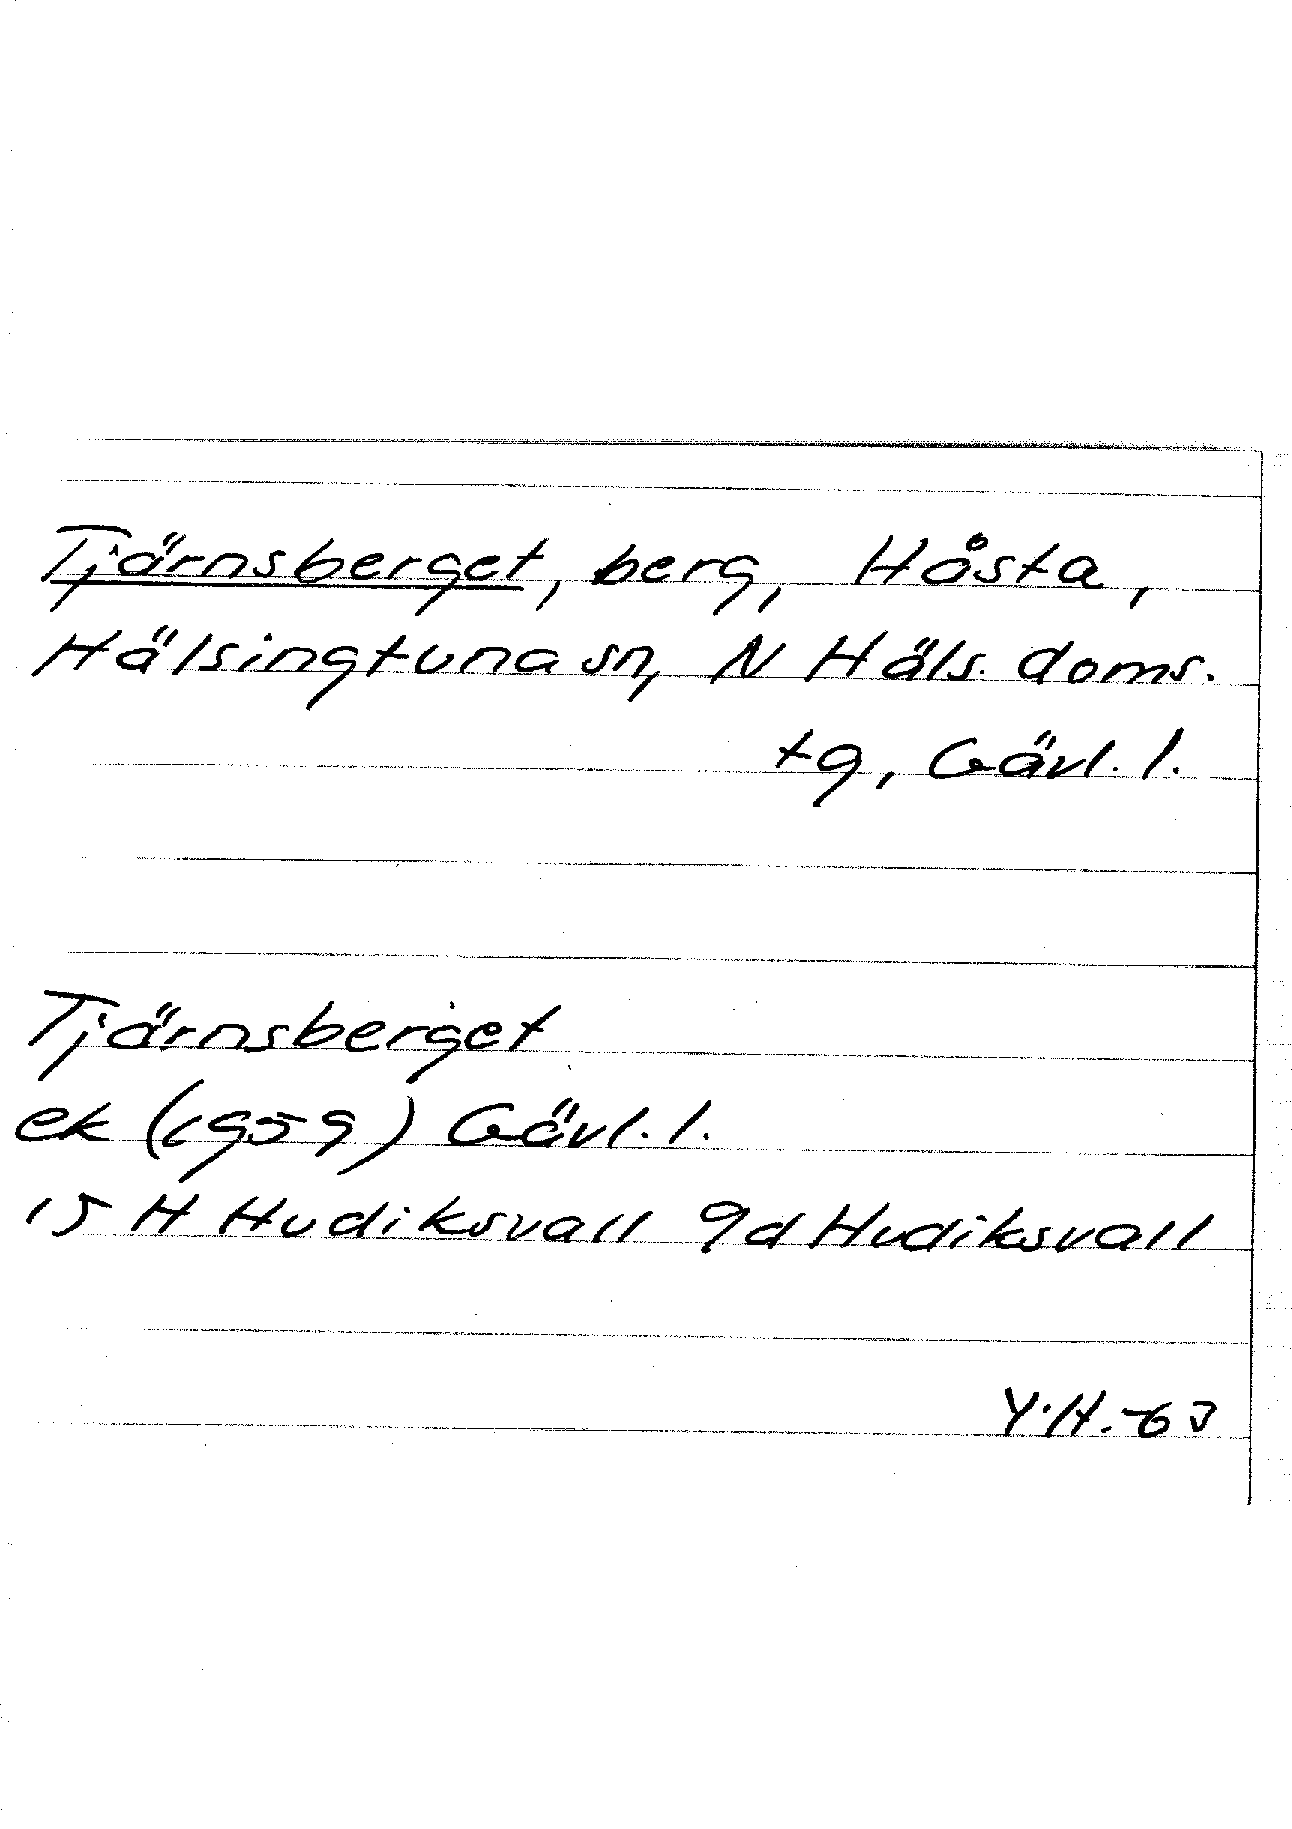 Tjärnsberget, berg, Håsta,
Hälsingtuna sn, N Häls. doms.
tg, Gävl. l.
Tjärnsberget
ek (1959) Gävl. l.
15 H Hudiksvall 9d Hudiksvall
Y.H. -63